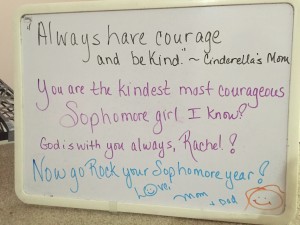 "Always have courage
and be kind." ~ Cinderella's Mom
You are the kindest most courageous
Sophomore girl I know!
God is with you always, Rachel!
Now go Rock your Sophomore year!
Love,
Mom
+ Dad